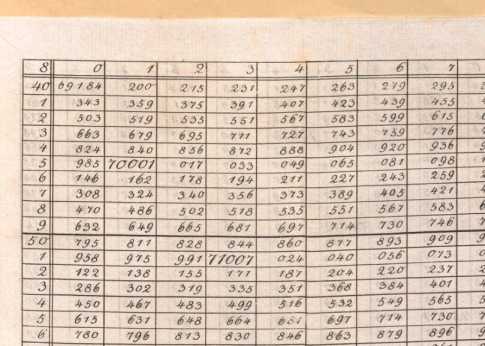 8 0 1 2 3 4 5 6 7
40 69184 200 215 231 247 263 279 295
1 343 359 375 391 407 423 439 455
2 503 519 535 551 567 583 599 615
3 663 679 695 711 727 743 759 776
4 824 840 856 872 888 904 920 936
5 985 70001 017 033 049 065 081 098
6 146 162 178 194 211 227 243 259
7 308 324 340 356 373 389 405 421
8 470 486 502 518 535 551 567 583
9 632 649 665 681 697 714 730 746
50 795 811 828 844 860 877 893 909
1 958 975 991 71007 024 040 056 073
2 122 138 155 171 187 204 220 237
3 286 302 319 335 351 368 384 401
4 450 467 483 499 516 532 549 565
5 615 631 648 664 681 697 714 730
6 780 796 813 830 846 863 879 896